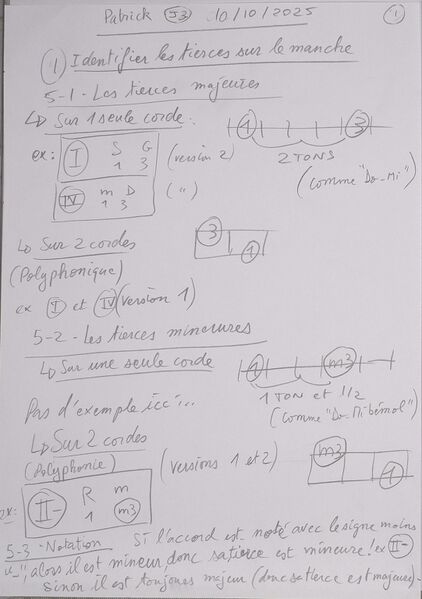 Patrick J3 10/10/2025
1
① Identifier les tierces sur le manche
5-1- Les tierces majeures
↳ Sur 1 seule corde :
1 3
ex: I S G (version 2)
1 3
2 TONS
(comme "Do-Mi")
IV m D (")
1 3
↳ Sur 2 cordes
(Polyphonique)
3
1
ex I et IV (version 1)
5-2- Les tierces mineures
↳ Sur une seule corde
1 m3
1 TON et 1/2
(comme "Do-Mi bémol")
Pas d'exemple ici...
↳ Sur 2 cordes
(Polyphonie) (versions 1 et 2)
m3
1
ex: II- R m
1 m3
5-3-Notation Si l'accord est noté avec le signe moins
"-", alors il est mineur, donc sa tierce est mineure! ex II-
sinon il est toujours majeur (donc sa tierce est majeure).